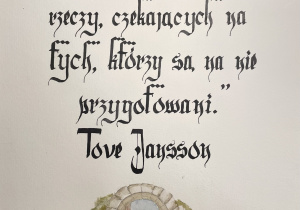 rzeczy, czekających na
tych, którzy są na nie
przygotowani."
Tove Jansson